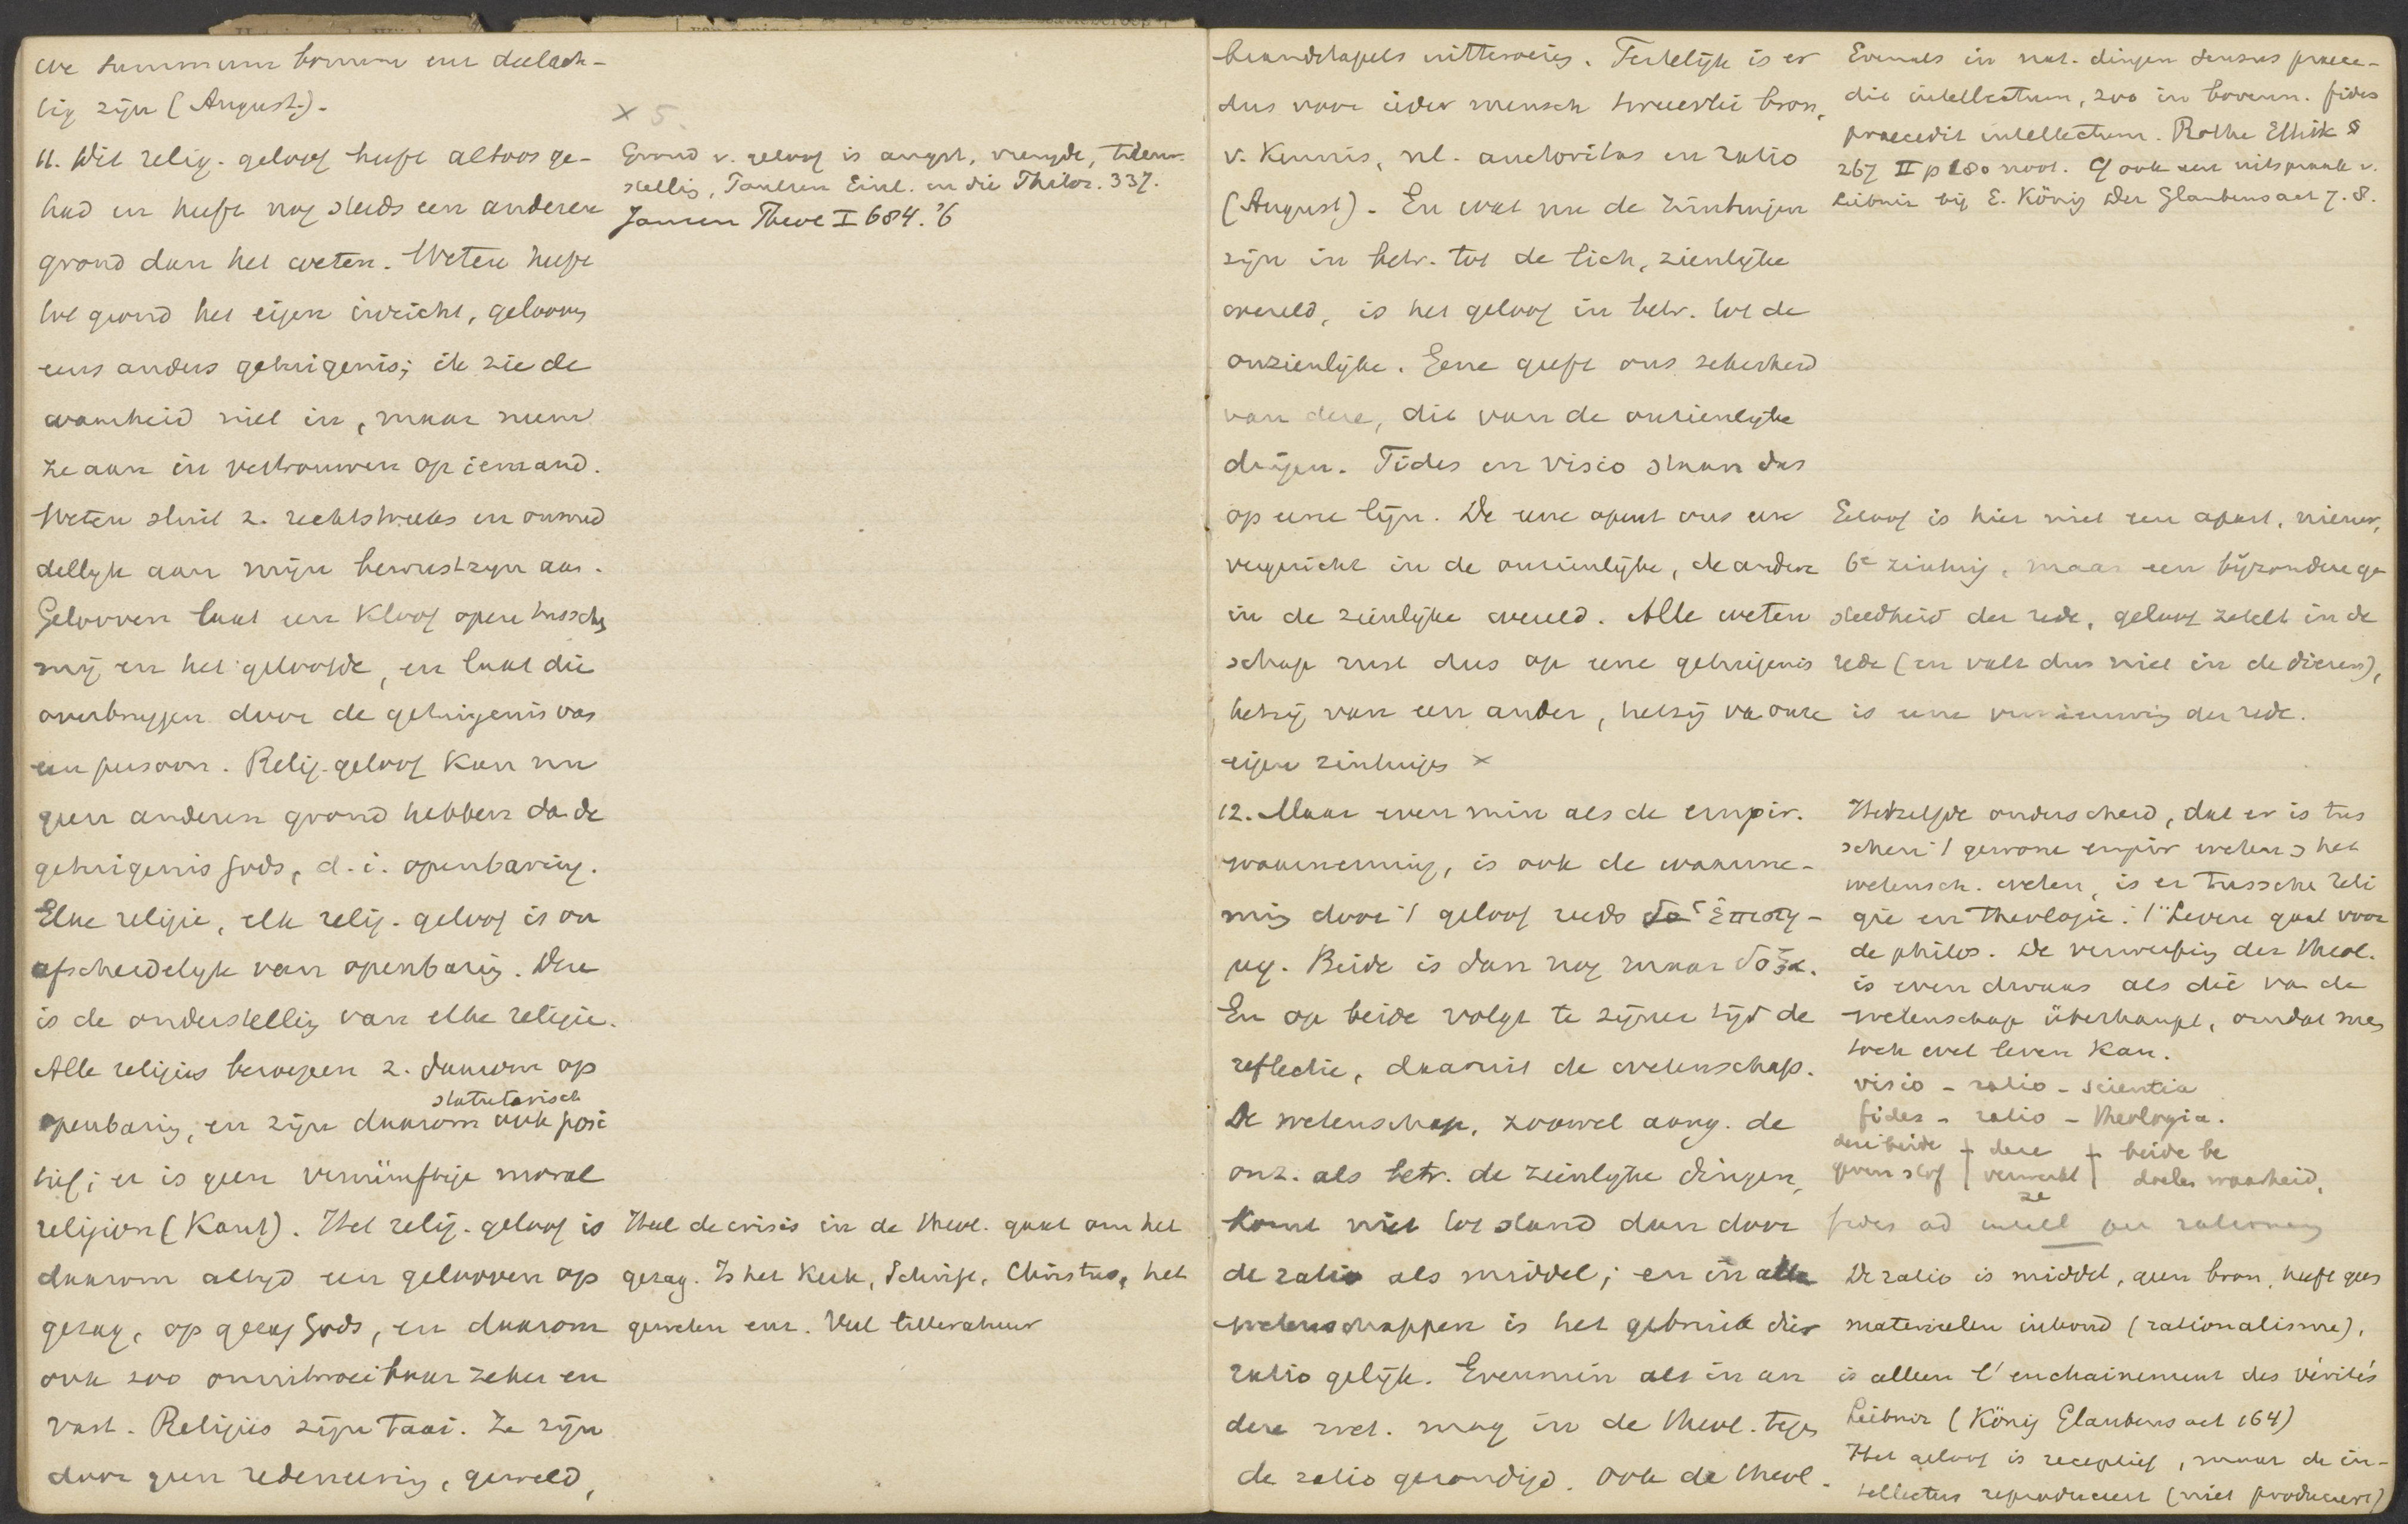 we summum bonum eur deelach-
tig zijn (August.).
11. Dit relig. geloof heeft altoos ge-
had en heeft nog steeds een anderen
grond dan het weten. Weten heeft
tot grond het eigen inzicht, gelooven
eens anders getuigenis; ik zie de
waarheid niet in, maar neem
ze aan in vertrouwen op iemand.
Weten sluit z. rechtstreeks en onmid
dellijk aan mijn bewustzijn aan.
Gelooven laat een kloof open tusschen
mij en het geloofde, en laat die
overbruggen door de getuigenis van
een persoon. Relig. geloof kan nu
geen anderen grond hebben dan de
getuigenis Gods, d. i. openbaring.
Elke religie, elk relig. geloof is on
afscheidelijk van openbaring. Deze
is de onderstelling van elke religie.
Alle religies beroepen z. daarom op
statutarisch
openbaring, en zijn daarom ook posi
tief; er is geen vernünftige moral
religion (Kant). Het relig. geloof is
daarom altijd een gelooven op
gezag, op gezag Gods, en daarom
ook zoo onuitroeibaar zeker en
vast. Religies zijn taai. Ze zijn
door geen redeneering, geweld,
× 5.
Grond v. geloof is angst, vreugde,
stellig, Paulsen Einl. in die Philos. 337.
Jansen Theol I 684. '6
Heel de crisis in de theol. gaat om het
gezag. Is het Kerk, Schrift, Christus, het
geweten enz. Veel litteratuur
brandstapels uitteroeien. Feitelijk is er
dus voor ieder mensch tweeerlei bron,
v. kennis, nl. auctoritas en ratio
(August). En wat nu de zintuigen
zijn in betr. tot de lich, zienlijke
wereld, is het geloof in betr. tot de
onzienlijke. Gene geeft ons zekerheid
van deze, dit van de onzienlijke
dingen. Fides en visio staan dus
op eene lijn. De eene opent ons een
vergezicht in de onzienlijke, de andere
in de zienlijke wereld. Alle weten
schap rust dus op eene getuigenis
hetzij van een ander, hetzij van onze
eigen zintuigen ×
12. Maar even min als de empir.
waarneming, is ook de waarne-
ming door 't geloof reeds ἐπιστη-
μη. Beide is dan nog maar δόξα.
En op beide volgt te zijner tijd de
reflectie, daaruit de wetenschap.
De wetenschap, zoowel aang. de
onz. als betr. de zienlijke dingen,
komt niet tot stand dan door
de ratio als middel; en in alle
wetenschappen is het gebruik dier
ratio gelijk. Evenmin als in an
dere wet. mag in de theol. tegen
de ratio gezondigd. Ook de theol.
Evenals in nat. dingen sensus praece-
dit intellectum, zoo in bovenn. fides
praecedit intellectum. Rothe Ethik §
267 II p 180 noot. Cf ook een uitspraak v.
Leibniz bij E. König Der Glaubensact 7. 8.
Geloof is hier niet een apart, nieuw,
6e zintuig, maar een bijzondere ge
steldheid der rede, geloof zetelt in de
rede (en valt dus niet in de dieren),
is eene vernieuwing der rede.
Hetzelfde onderscheid, dat er is tus
schen 't gewone empir weten & het
wetensch. weten, is er tusschen reli
gie en theologie. 't Leven gaat voor
de philos. De verwerping der theol.
is even dwaas als die van de
wetenschap überhaupt, omdat men
toch wel leven kan.
visio - ratio - scientia
fides - ratio - theologia.
deze beide } deze } beide be
geven stof } verwerkt } doelen waarheid.
ze
fides ad intell per rationem
De ratio is middel, geen bron, heeft geen
materieelen inhoud (rationalisme),
is alleen l'enchainement des vérités
Leibniz (König Glaubensact 164)
Het geloof is receptief, maar de in-
tellectus reproduceert (niet produceert)